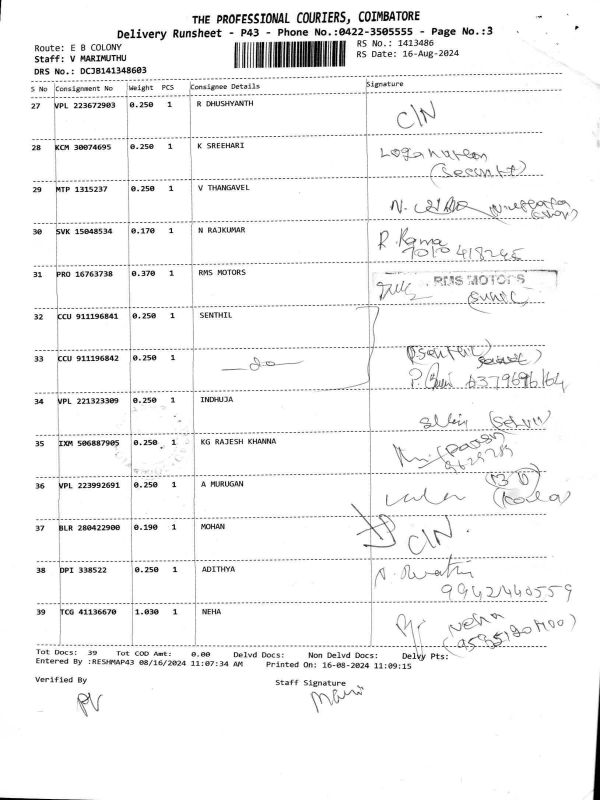 THE PROFESSIONAL COURIERS, COIMBATORE
Delivery Runsheet - P43 - Phone No.:0422-3505555 - Page No.:3
Route: E B COLONY RS No.: 1413486
Staff: V MARIMUTHU RS Date: 16-Aug-2024
DRS No.: DCJB141348603
S No Consignment No Weight PCS Consignee Details Signature
27 VPL 223672903 0.250 1 R DHUSHYANTH C/N
28 KCM 30074695 0.250 1 K SREEHARI
(Security)
29 MTP 1315237 0.250 1 V THANGAVEL N.
30 SVK 15048534 0.170 1 N RAJKUMAR R. Rama
7010418245
31 PRO 16763738 0.370 1 RMS MOTORS RMS MOTORS
32 CCU 911196841 0.250 1 SENTHIL
33 CCU 911196842 0.250 1 —do—
P. 6379696164
34 VPL 221323309 0.250 1 INDHUJA
35 IXM 506887905 0.250 1 KG RAJESH KHANNA
36 VPL 223992691 0.250 1 A MURUGAN
37 BLR 280422900 0.190 1 MOHAN C/N.
38 DPI 338522 0.250 1 ADITHYA
9942440559
39 TCG 41136670 1.030 1 NEHA Neha
Tot Docs: 39 Tot COD Amt: 0.00 Delvd Docs: Non Delvd Docs: Delvy Pts:
Entered By :RESHMAP43 08/16/2024 11:07:34 AM Printed On: 16-08-2024 11:09:15
Verified By Staff Signature
PV